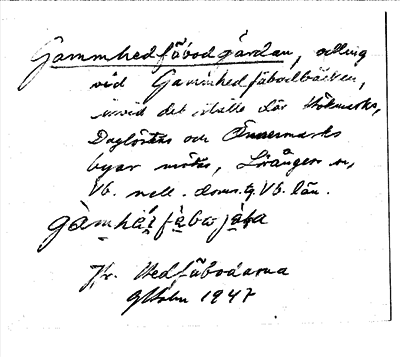 Gammhedfäbodgärdan, odling
vid Gammhedfäbodbäcken,
invid det ställe där Stökmarks,
Daglöstens och Önnesmarks
byar mötas, Lövångers sn,
Vb. mell. doms. G Vb. län.
gàmhä́ fä̀bo jä̀ḷa
Jfr. Hedfäbodarna
GHolm 1947